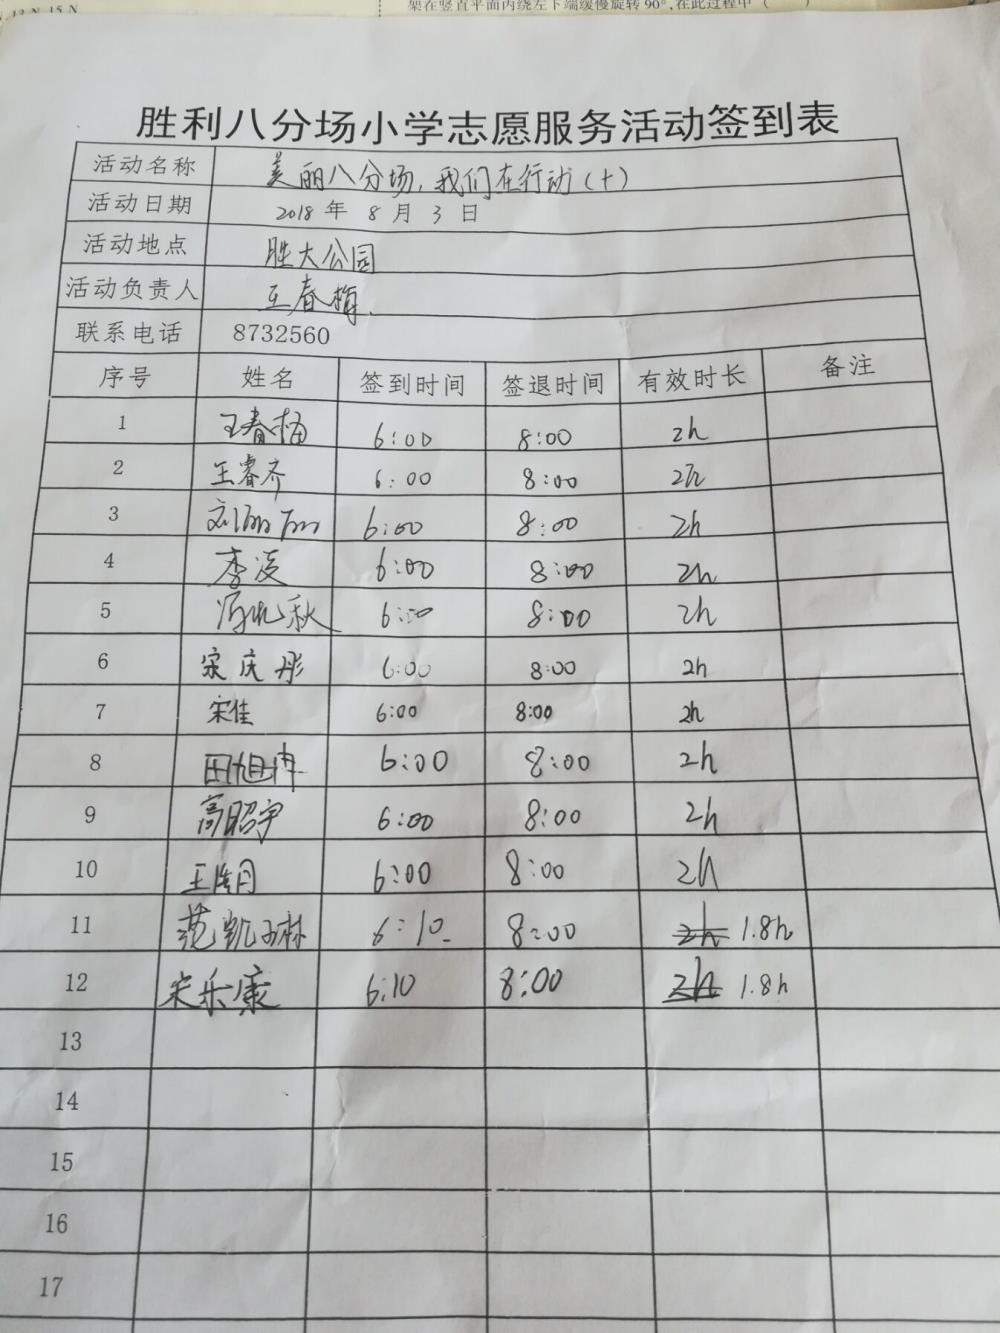 架在竖直平面内绕左下端缓慢旋转90°,在此过程中(　　)
胜利八分场小学志愿服务活动签到表
活动名称 美丽八分场,我们在行动(十)
活动日期 2018 年 8 月 3 日
活动地点 胜大公园
活动负责人 王春梅
联系电话 8732560
序号 姓名 签到时间 签退时间 有效时长 备注
1 王春梅 6:00 8:00 2h
2 王睿齐 6:00 8:00 2h
3 刘丽丽 6:00 8:00 2h
4 李凌 6:00 8:00 2h
5 秋 6:00 8:00 2h
6 宋庆彤 6:00 8:00 2h
7 宋佳 6:00 8:00 2h
8 田旭冉 6:00 8:00 2h
9 高昭宇 6:00 8:00 2h
10 王 6:00 8:00 2h
11 范凯林 6:10 8:00 2h 1.8h
12 宋乐康 6:10 8:00 2h 1.8h
13
14
15
16
17